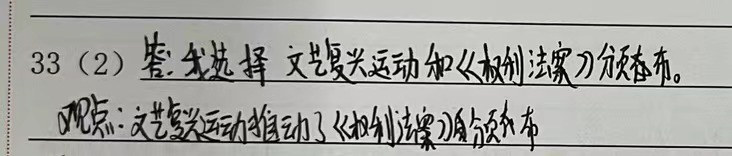 33（2）答：我选择 文艺复兴运动和《权利法案》颁布。
观点：文艺复兴运动推动了《权利法案》的颁布